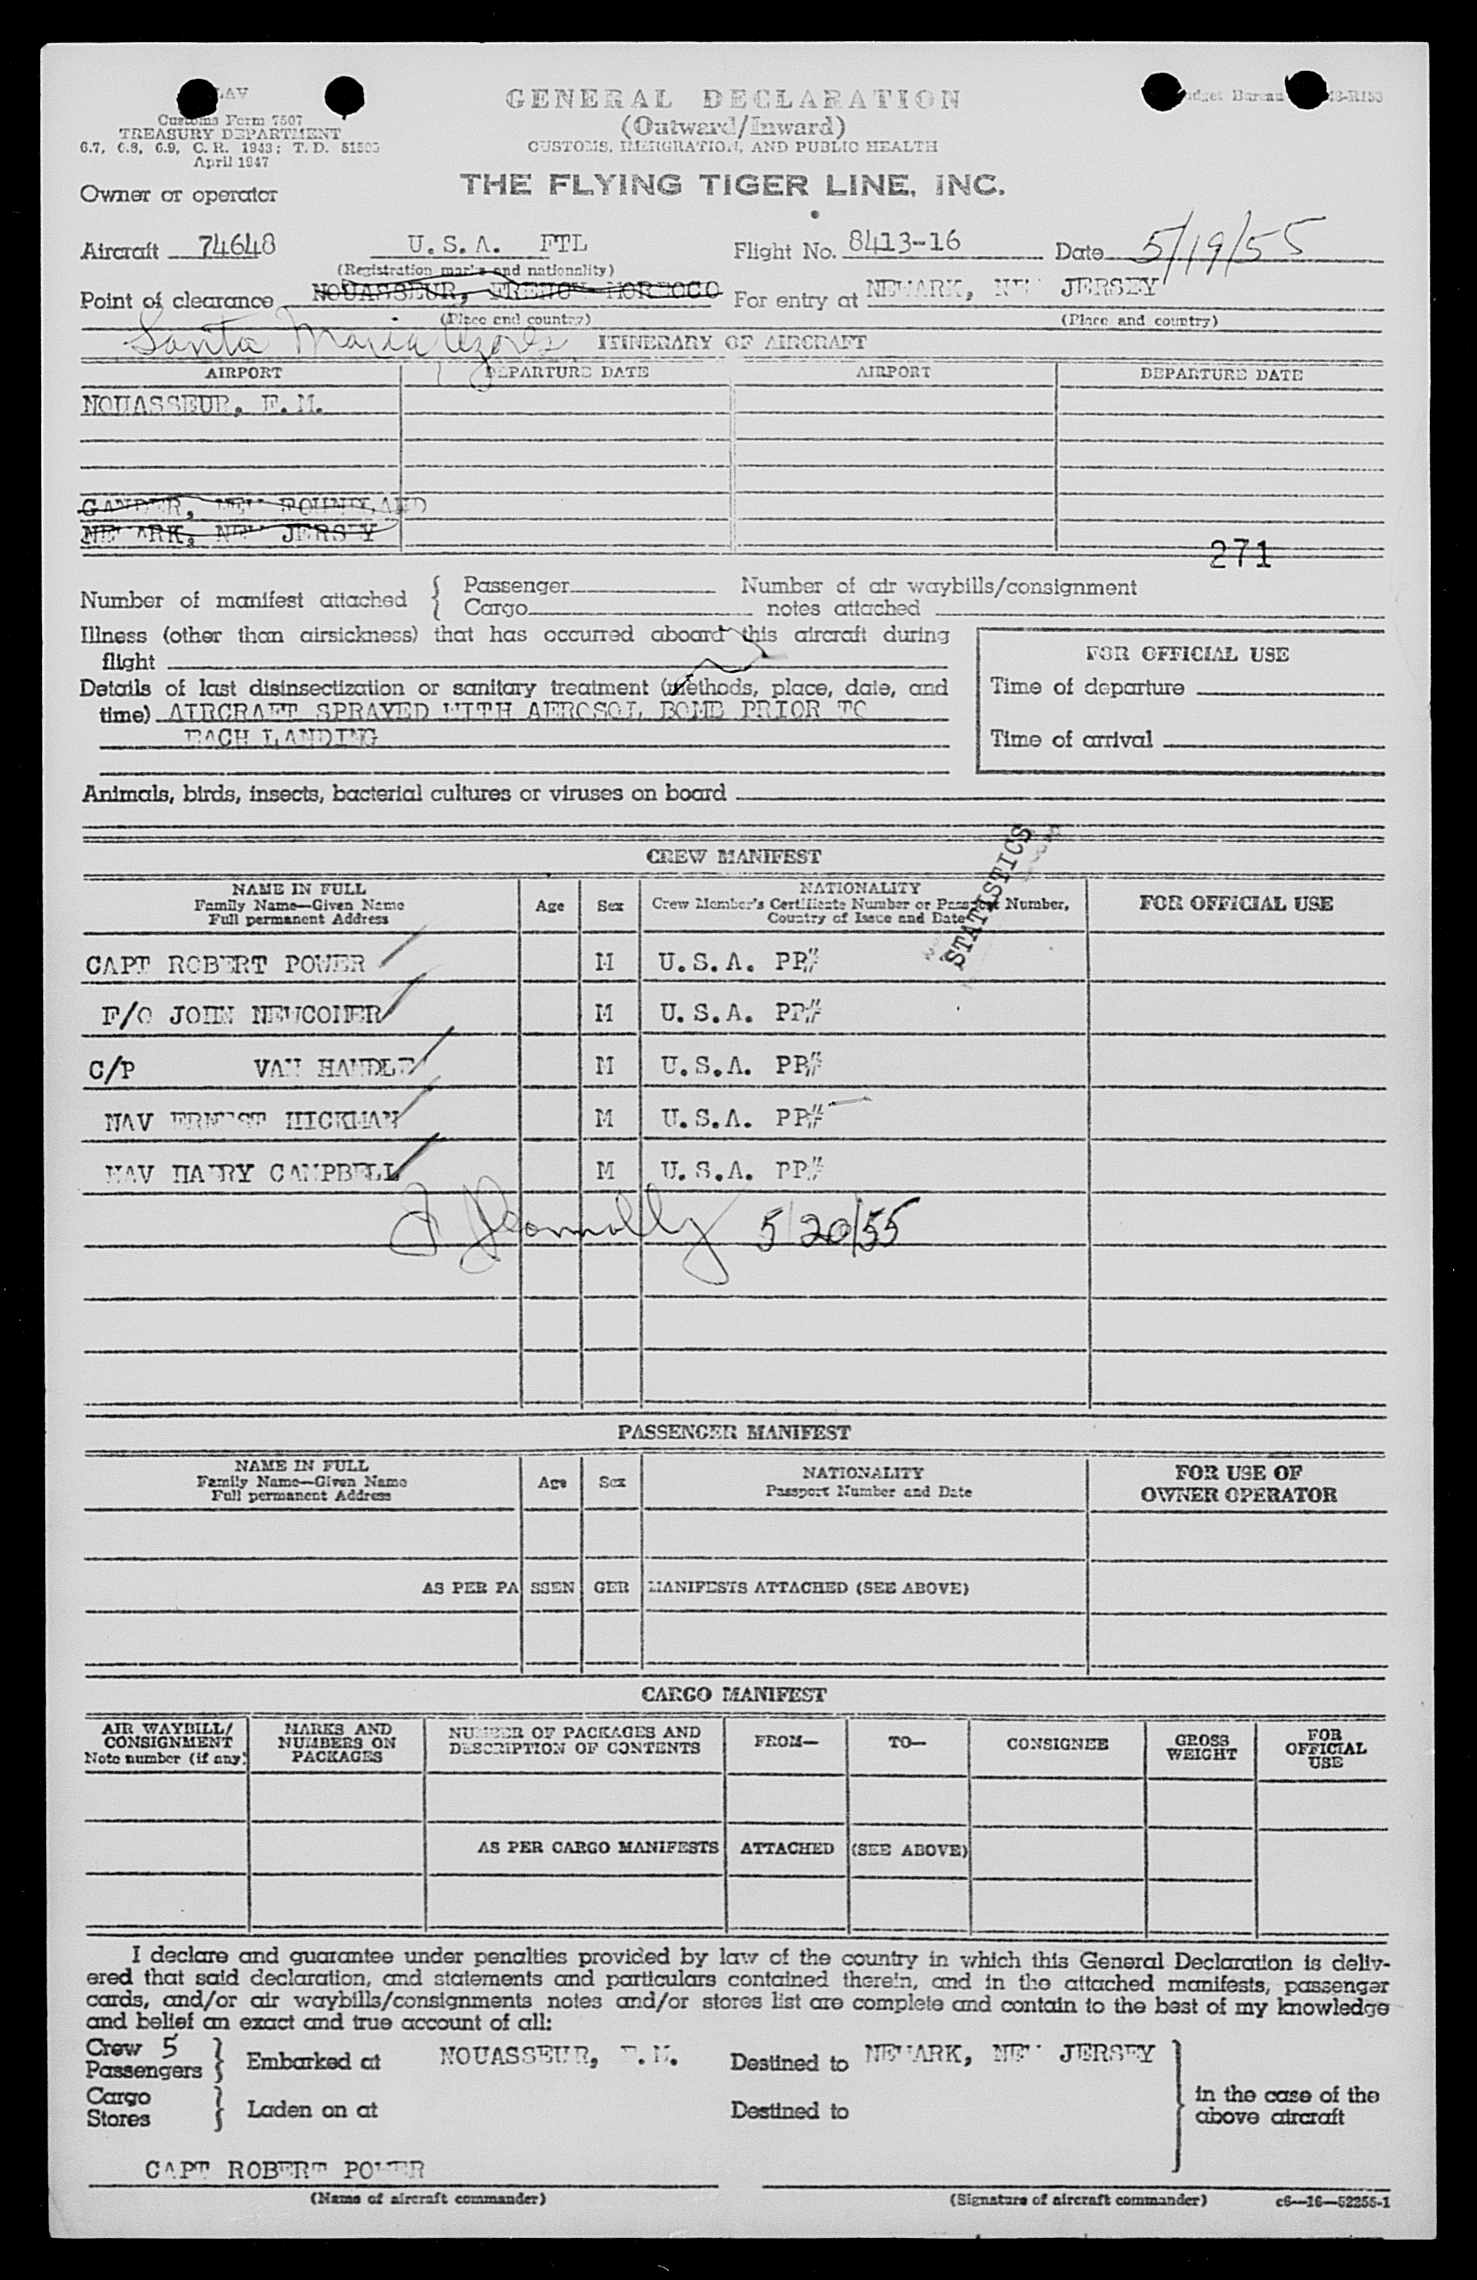 LAV
Customs Form 7507
TREASURY DEPARTMENT
6.7, 6.8, 6.9, C. R. 1943; T. D.
April 1947
GENERAL DECLARATION
(Outward/Inward)
CUSTOMS, IMMIGRATION, AND PUBLIC HEALTH
Budget Bureau
Owner or operator
THE FLYING TIGER LINE, INC.
Aircraft 74648 U.S.A. FTL Flight No. 8413-16 Date 5/19/55
(Registration marks and nationality)
Point of clearance NOUASSEUR, FRENCH MOROCCO For entry at NEWARK, NEW JERSEY
(Place and country) (Place and country)
Santa Maria Azores ITINERARY OF AIRCRAFT
AIRPORT DEPARTURE DATE AIRPORT DEPARTURE DATE
NOUASSEUR, F.M.
GANDER, NEW FOUNDLAND
NEWARK, NEW JERSEY
271
Number of manifest attached { Passenger Number of air waybills/consignment
Cargo notes attached
Illness (other than airsickness) that has occurred aboard this aircraft during
flight
FOR OFFICIAL USE
Details of last disinsectization or sanitary treatment (methods, place, date, and
Time of departure
time) AIRCRAFT SPRAYED WITH AEROSOL BOMB PRIOR TO
EACH LANDING
Time of arrival
Animals, birds, insects, bacterial cultures or viruses on board
STATISTICS
CREW MANIFEST
NAME IN FULL
Family Name—Given Name
Full permanent Address
Age
Sex
NATIONALITY
Crew Member's Certificate Number or Passport Number,
Country of Issue and Date
FOR OFFICIAL USE
CAPT ROBERT POWER M U.S.A. PP#
F/O JOHN NEWCOMER M U.S.A. PP#
C/P VAN HANDLE M U.S.A. PP#
NAV ERNEST HICKMAN M U.S.A. PP#
NAV HARRY CAMPBELL M U.S.A. PP#
5/20/55
PASSENGER MANIFEST
NAME IN FULL
Family Name—Given Name
Full permanent Address
Age
Sex
NATIONALITY
Passport Number and Date
FOR USE OF
OWNER OPERATOR
AS PER PASSENGER MANIFESTS ATTACHED (SEE ABOVE)
CARGO MANIFEST
AIR WAYBILL/
CONSIGNMENT
Note number (if any)
MARKS AND
NUMBERS ON
PACKAGES
NUMBER OF PACKAGES AND
DESCRIPTION OF CONTENTS
FROM—
TO—
CONSIGNEE
GROSS
WEIGHT
FOR
OFFICIAL
USE
AS PER CARGO MANIFESTS ATTACHED (SEE ABOVE)
I declare and guarantee under penalties provided by law of the country in which this General Declaration is deliv-
ered that said declaration, and statements and particulars contained therein, and in the attached manifests, passenger
cards, and/or air waybills/consignments notes and/or stores list are complete and contain to the best of my knowledge
and belief an exact and true account of all:
Crew 5
Passengers } Embarked at NOUASSEUR, F.M. Destined to NEWARK, NEW JERSEY
Cargo
Stores } Laden on at Destined to
in the case of the
above aircraft
CAPT ROBERT POWER
(Name of aircraft commander) (Signature of aircraft commander) c6—16—52255-1